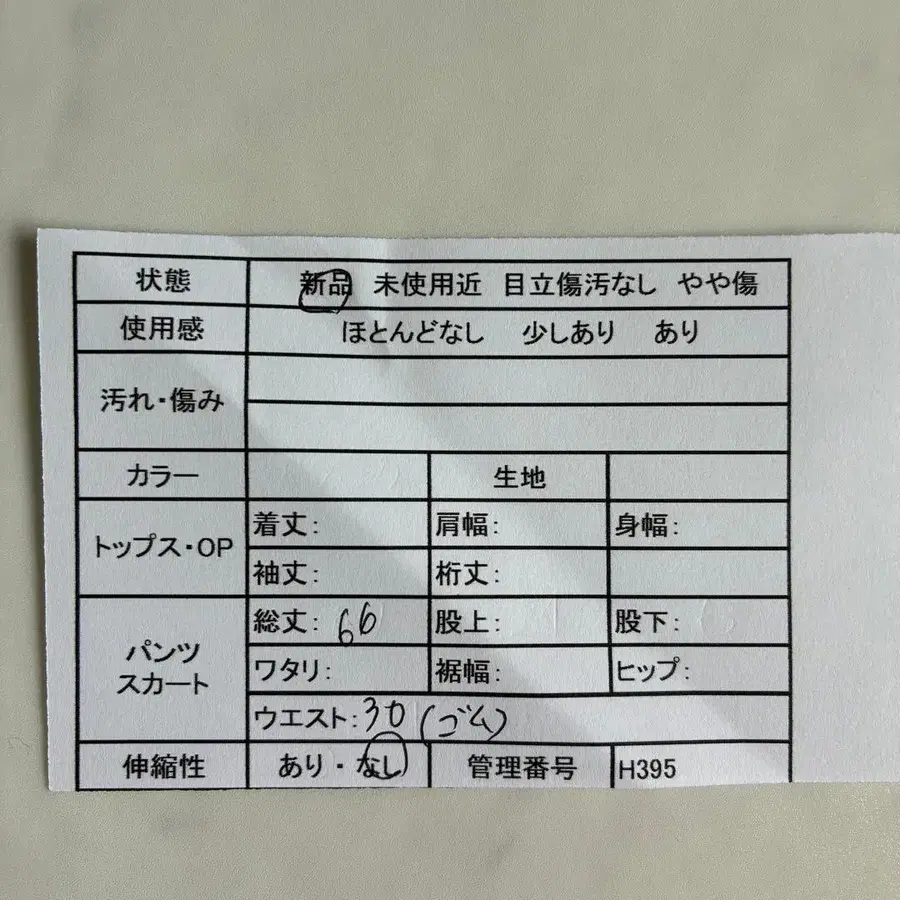 状態 新品 未使用近 目立傷汚なし やや傷
使用感 ほとんどなし 少しあり あり
汚れ・傷み
カラー 生地
トップス・OP 着丈: 肩幅: 身幅:
袖丈: 裄丈:
パンツ スカート 総丈: 66 股上: 股下:
ワタリ: 裾幅: ヒップ:
ウエスト: 30 (ゴム)
伸縮性 あり・なし 管理番号 H395